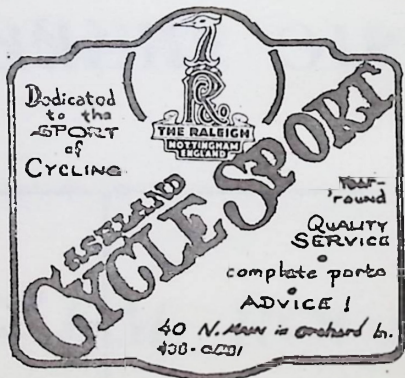 Dedicated
to the
SPORT
of
CYCLING
R
THE RALEIGH
NOTTINGHAM
ENGLAND
ASHLAND
CYCLE SPORT
Year-
'round
QUALITY
SERVICE
complete parts
ADVICE!
40 N. MAIN in orchard ln.